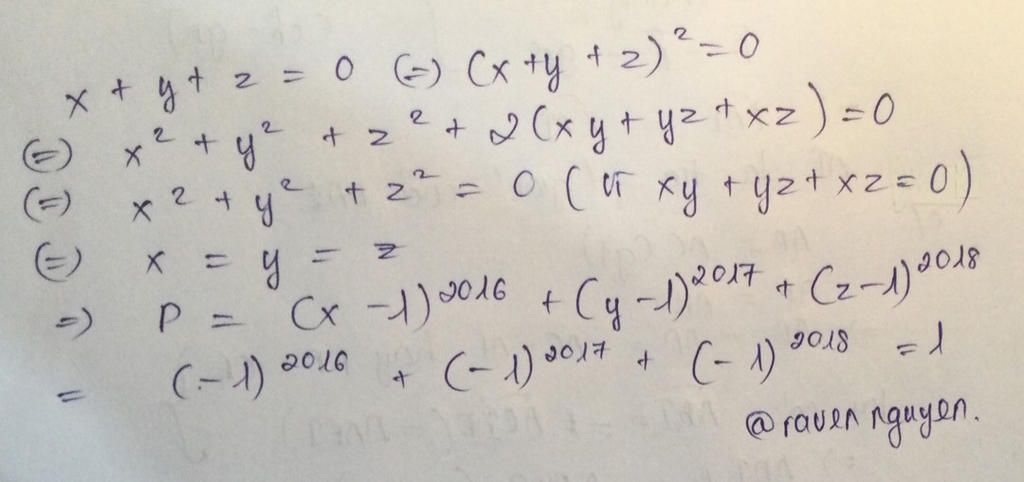 x + y + z = 0 (=) (x + y + z)² = 0
(=) x² + y² + z² + 2(xy + yz + xz) = 0
(=) x² + y² + z² = 0 (vì xy + yz + xz = 0)
(=) x = y = z
=) P = (x - 1)²⁰¹⁶ + (y - 1)²⁰¹⁷ + (z - 1)²⁰¹⁸
= (-1)²⁰¹⁶ + (-1)²⁰¹⁷ + (-1)²⁰¹⁸ = 1
@raven nguyen.